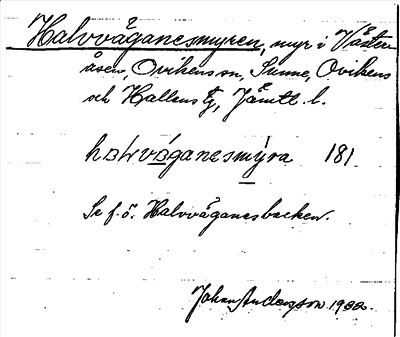 Halvvåganesmyren, myr i Väster-
åsen, Ovikens sn, Sunne, Ovikens
och Hallens tg, Jämtl. l.
halvvåganesmýra 181
Se f. ö. Halvvåganesbacken.
Johan Anderzon 1900.